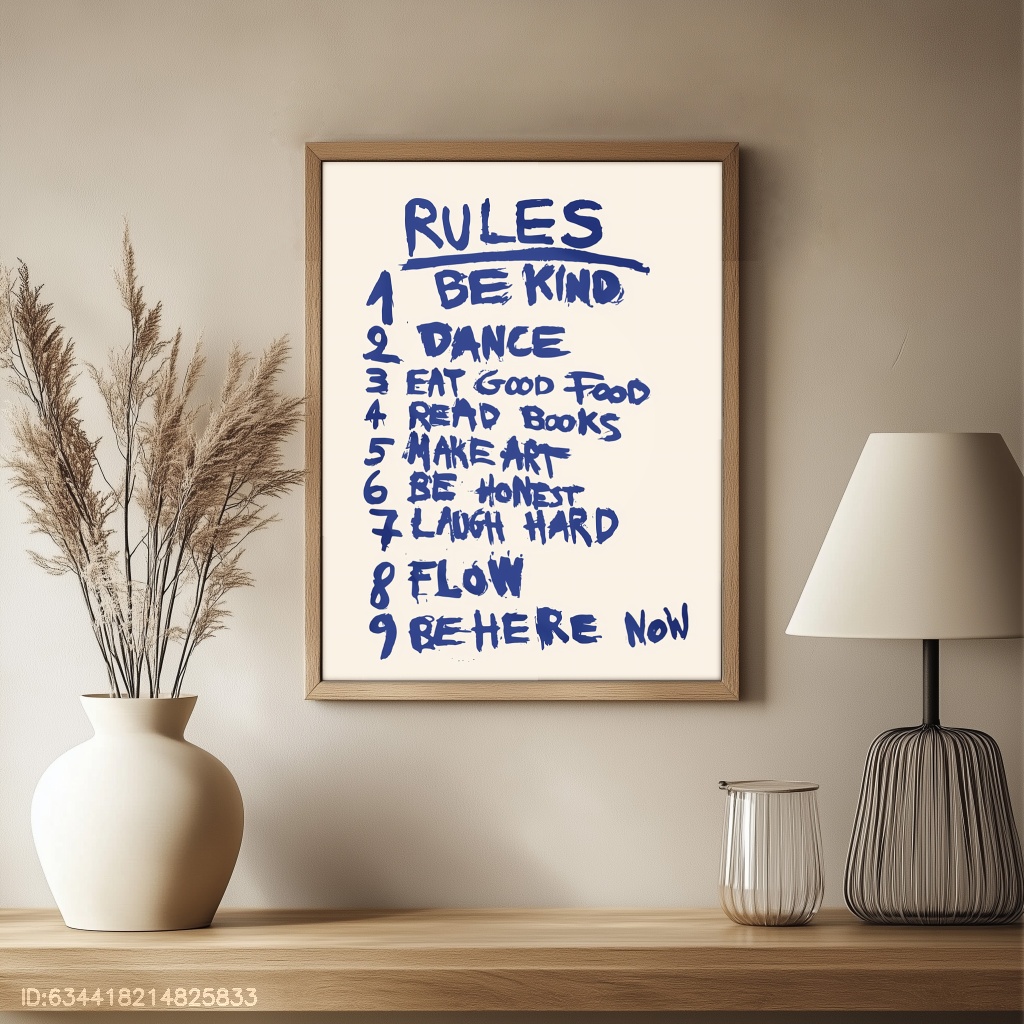 RULES
1 BE KIND
2 DANCE
3 EAT GOOD FOOD
4 READ BOOKS
5 MAKE ART
6 BE HONEST
7 LAUGH HARD
8 FLOW
9 BE HERE NOW
ID:634418214825833